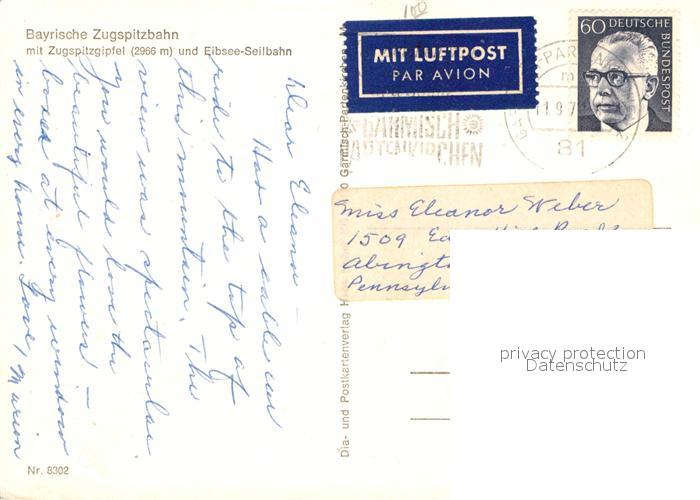 Bayrische Zugspitzbahn
mit Zugspitzgipfel (2966 m) und Eibsee-Seilbahn
Dear Eleanor –
Had a cable car
ride to the top of
this mountain. The
view was spectacular.
You would love the
beautiful flowers –
boxes at every window
in every house. Love, Marion
Nr. 8302
Dia- und Postkartenverlag H
0 Garmisch-Partenkirchen
100
MIT LUFTPOST
PAR AVION
60 DEUTSCHE
BUNDESPOST
11.9.7
81
GARMISCH
PARTENKIRCHEN
Miss Eleanor Weber
1509
Abingt
Pennsylv
privacy protection
Datenschutz